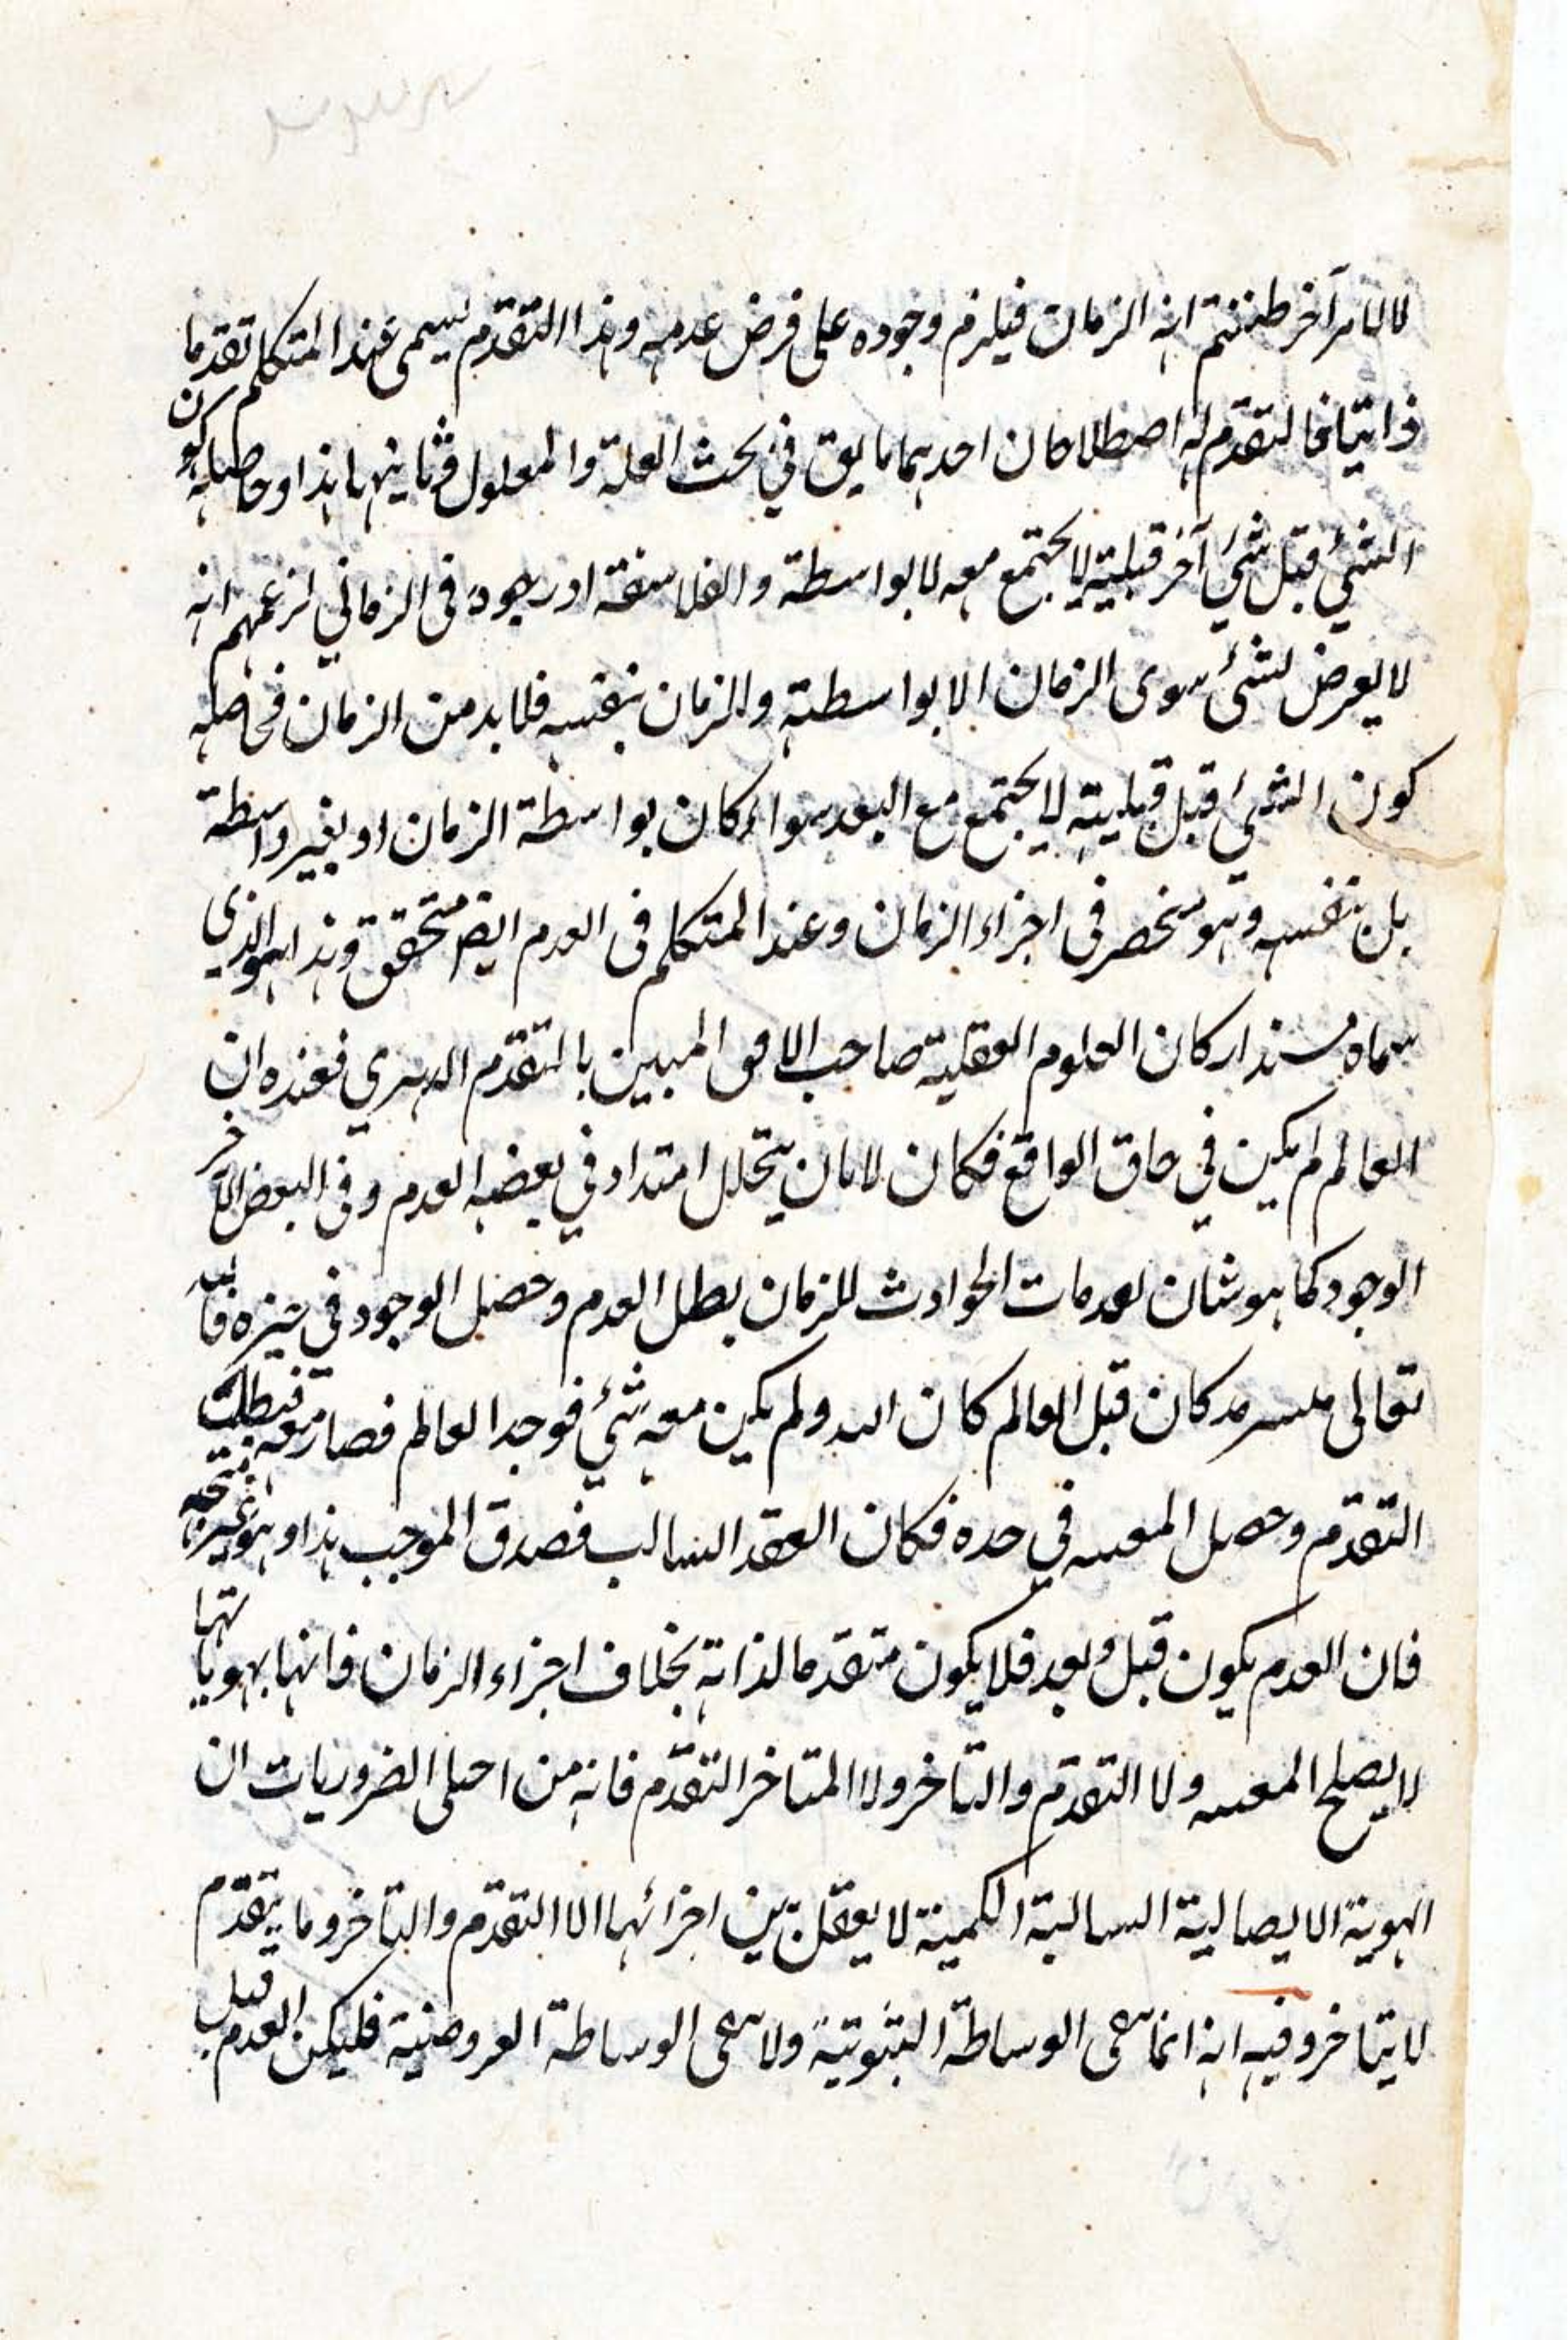 لا لامر آخر ظننتم انه الزمان فيلزم وجوده على فرض عدمه وهذا التقدم يسمى عند المتكلم تقدما
ذاتيا فالتقدم له اصطلاحان احدهما ما يق في بحث العلة والمعلول وثانيهما هذا وحاصله كون
الشيء قبل شيء آخر قبلية لا يجتمع معه لا بواسطة والفلاسفة ادرجوه في الزماني لزعمهم انه
لا يعرض لشئ سوى الزمان الا بواسطته والزمان بنفسه فلا بد من الزمان فحاصله
كون الشيء قبل قبلية لا يجتمع مع البعد سواء كان بواسطة الزمان او بغير واسطة
بل بنفسه وهو منحصر في اجزاء الزمان وعند المتكلم في العدم ايضا متحقق وهذا هو الذي
سماه مسند اركان العلوم العقلية صاحب الافق المبين بالتقدم الدهري فعنده ان
العالم لم يكن في حاق الواقع فكان لا بان يتخلل امتداد في بعضه العدم وفي البعض الآخر
الوجود كما هو شان لعدمات الحوادث للزمان بطل العدم وحصل الوجود في حيزه فالله
تعالى كان قبل العالم كان الله ولم يكن معه شيء فوجد العالم فصار معه فبطلت
التقدم وحصل المعيه في حده فكان العقد السالب فصدق الموجب هذا وهو غير
فان العدم يكون قبل وبعد فلا يكون متقدما لذاته بخلاف اجزاء الزمان فانها بهوياتها
لا يصلح المعيه ولا التقدم والتاخر ولا المتاخر التقدم فانه من اجلى الضروريات ان
الهوية الايصالية السالبة الكمية لا يعقل بين اجزائها الا التقدم والتاخر وما يتقدم
لا يتاخر وفيه انه انما نفى الوساطة الثبوتية ولا نفى الوساطة العروضية فليكن العدم قبل